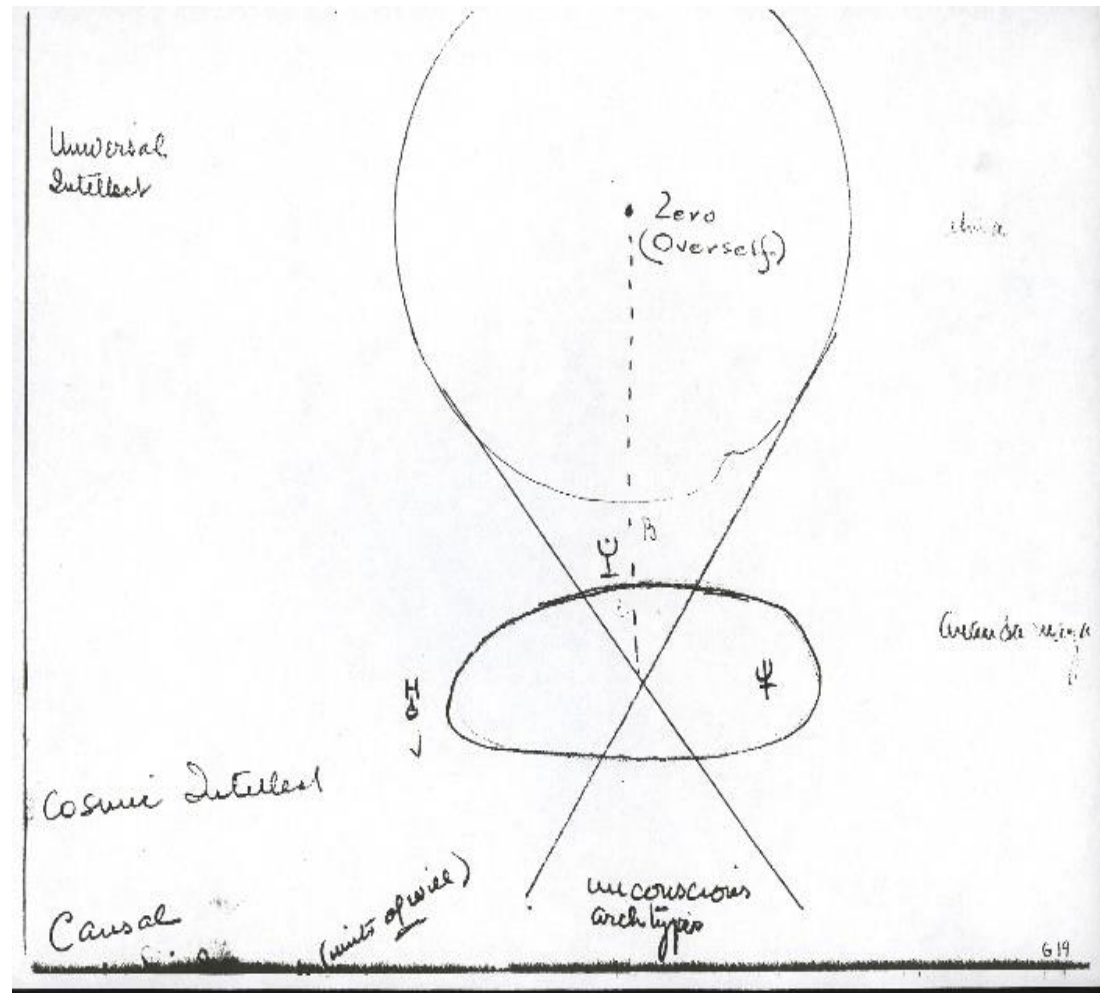 Universal
Intellect
Zero
(Overself)
B
Cosmic Intellect
Causal
(units of will)
unconscious
archtypes
G19